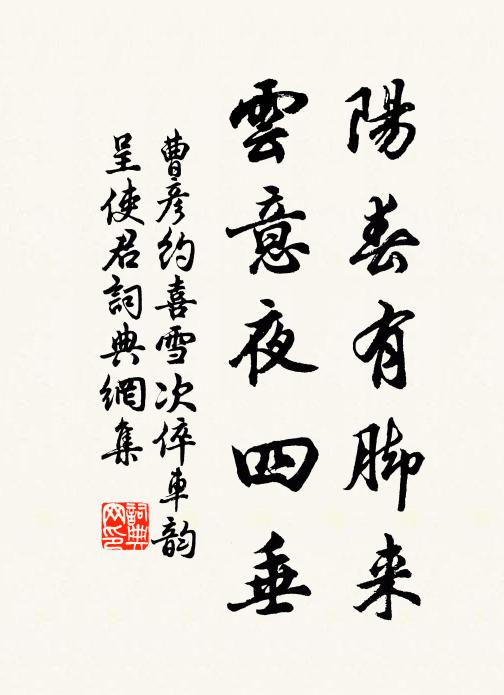 陽春有脚来
雲意夜四垂
曹彦約喜雪次倅車韵
呈使君詞典網集
詞典網印